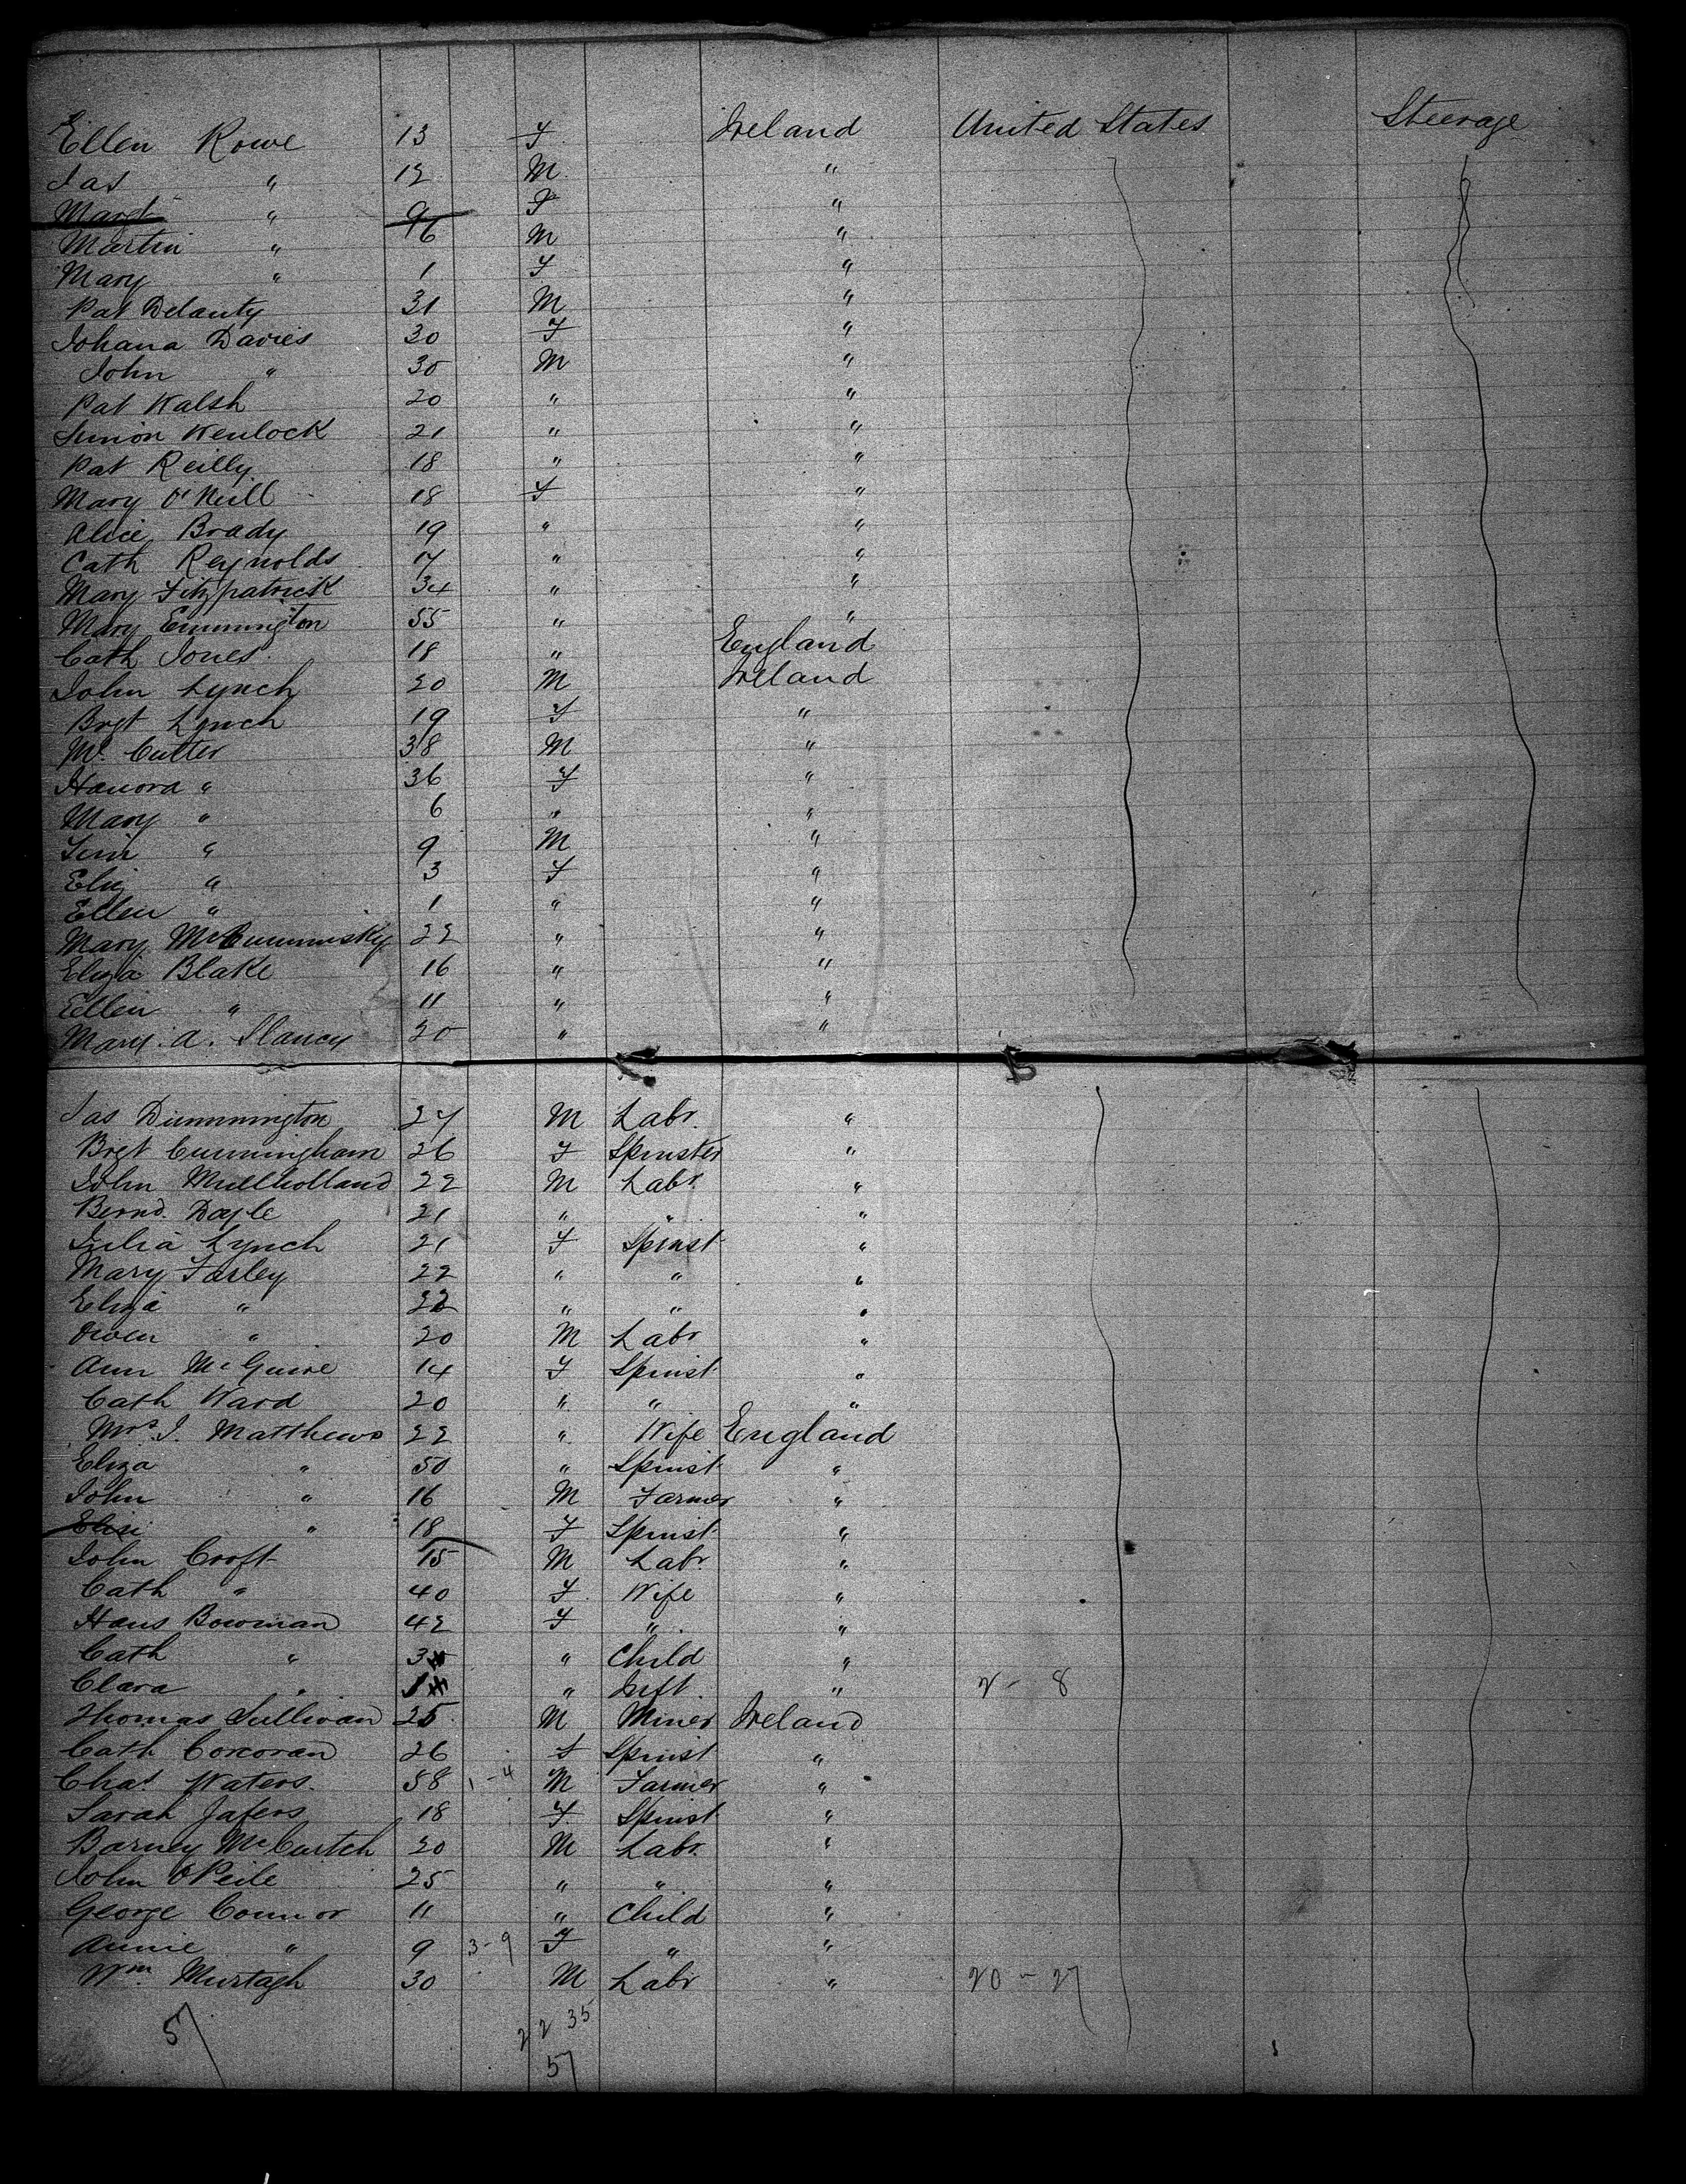 Ellen Rowe 13 F Ireland United States Steerage
Jas " 12 M "
Margt " 9 F "
Martin " 6 M "
Mary " 1 F "
Pat Delanty 31 M "
Johana Davies 30 F "
John " 30 M "
Pat Walsh 20 " "
Simon Wenlock 21 " "
Pat Reilly 18 " "
Mary O'Neill 18 F "
Alice Brady 19 " "
Cath Reynolds 17 " "
Mary Fitzpatrick 34 " "
Mary Emmington 55 " "
Cath Jones 18 " England
John Lynch 20 M Ireland
Brgt Lynch 19 F "
Ml. Cutter 38 M "
Hanora " 36 F "
Mary " 6 " "
Tim " 9 M "
Eliz " 3 F "
Ellen " 1 " "
Mary McCummisky 22 " "
Eliza Blake 16 " "
Ellen " 11 " "
Mary A. Slancy 20 " "
Jas Dimmington 27 M Labr. "
Brgt Cunningham 26 F Spinster "
John Mullholland 22 M Labr "
Bernd. Doyle 21 " " "
Julia Lynch 21 F Spinst "
Mary Farley 22 " " "
Eliza " 22 " " "
Owen " 20 M Labr "
Ann McGuire 14 F Spinst "
Cath Ward 20 " " "
Mrs J. Matthews 22 " Wife England
Eliza " 50 " Spinst "
John " 16 M Farmer "
Elisi " 18 F Spinst "
John Croft 15 M Labr. "
Cath " 40 F Wife "
Hans Bowman 42 F " "
Cath " 3 " Child "
Clara " 1 " Inft. " 2 - 8
Thomas Sullivan 25 M Miner Ireland
Cath Corcoran 26 F Spinst "
Chas Waters 58 1 - 4 M Farmer "
Sarah Jafers 18 F Spinst "
Barney McCurtch 20 M Labr. "
John O'Peile 25 " " "
George Connor 11 " Child "
Annie " 9 3 - 9 F " "
Wm Murtagh 30 M Labr " 20 - 27
57 22 35
57